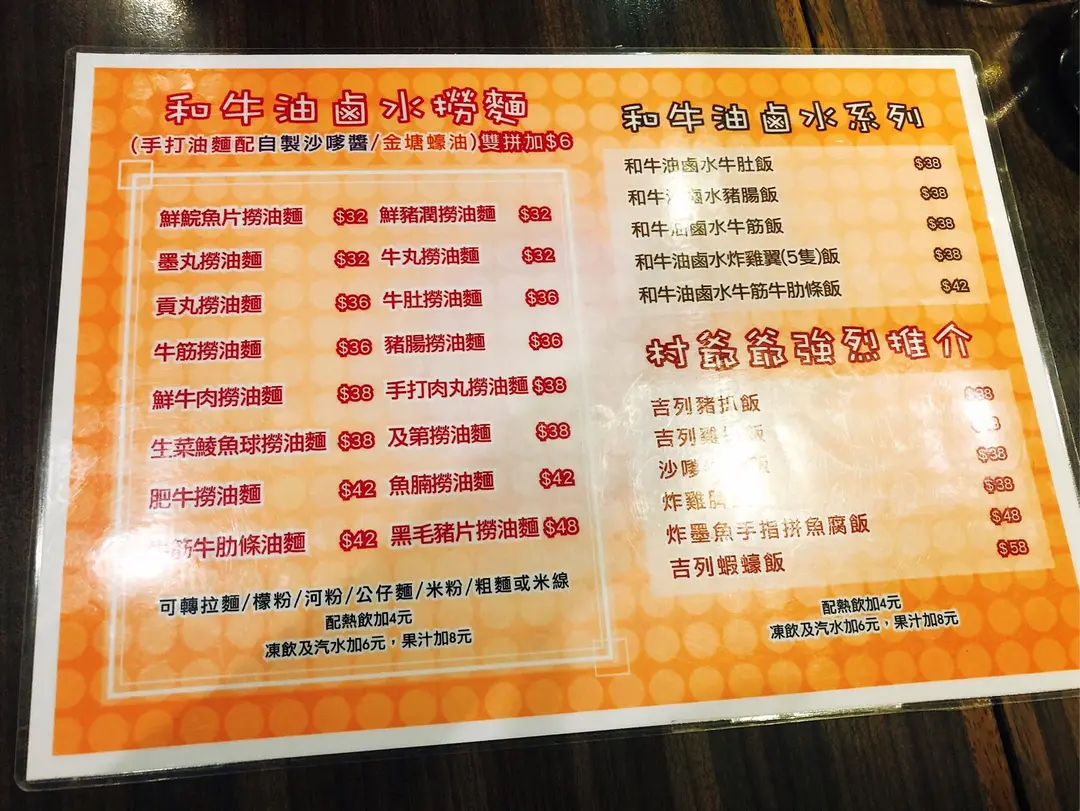 和牛油鹵水撈麵
(手打油麵配自製沙嗲醬/金塘蠔油)雙拼加$6
鮮鯇魚片撈油麵 $32 鮮豬潤撈油麵 $32
墨丸撈油麵 $32 牛丸撈油麵 $32
貢丸撈油麵 $36 牛肚撈油麵 $36
牛筋撈油麵 $36 豬腸撈油麵 $36
鮮牛肉撈油麵 $38 手打肉丸撈油麵 $38
生菜鯪魚球撈油麵 $38 及第撈油麵 $38
肥牛撈油麵 $42 魚腩撈油麵 $42
筋牛肋條油麵 $42 黑毛豬片撈油麵 $48
可轉拉麵/檬粉/河粉/公仔麵/米粉/粗麵或米線
配熱飲加4元
凍飲及汽水加6元，果汁加8元
和牛油鹵水系列
和牛油鹵水牛肚飯 $38
和牛油鹵水豬腸飯 $38
和牛油鹵水牛筋飯 $38
和牛油鹵水炸雞翼(5隻)飯 $38
和牛油鹵水牛筋牛肋條飯 $42
村爺爺強烈推介
吉列豬扒飯 $38
吉列雞飯
沙嗲飯 $38
炸雞 $38
炸墨魚手指拼魚腐飯 $48
吉列蝦蠔飯 $58
配熱飲加4元
凍飲及汽水加6元，果汁加8元